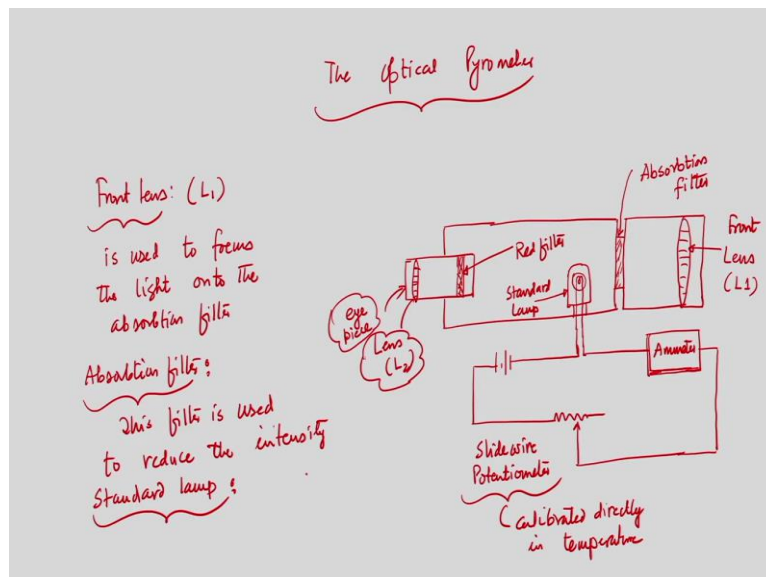 The Optical Pyrometer
Front lens: (L1)
is used to focus
the light onto the
absorbtion filter
Absorbtion filter:
This filter is used
to reduce the intensity
Standard lamp:
Absorbtion
filter
Front
Lens
(L1)
Red filter
Standard
Lamp
eye
piece
Lens
(L2)
Ammeter
Slidewire
Potentiometer
(calibrated directly
in temperature